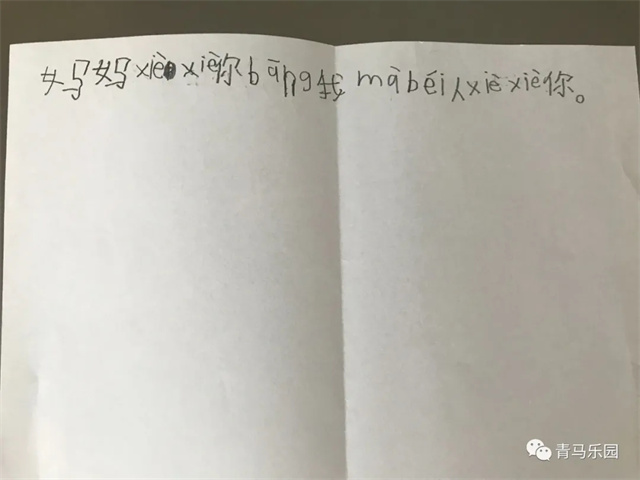 妈妈xièxiè你bāng我màbéi人xièxiè你。
青马乐园